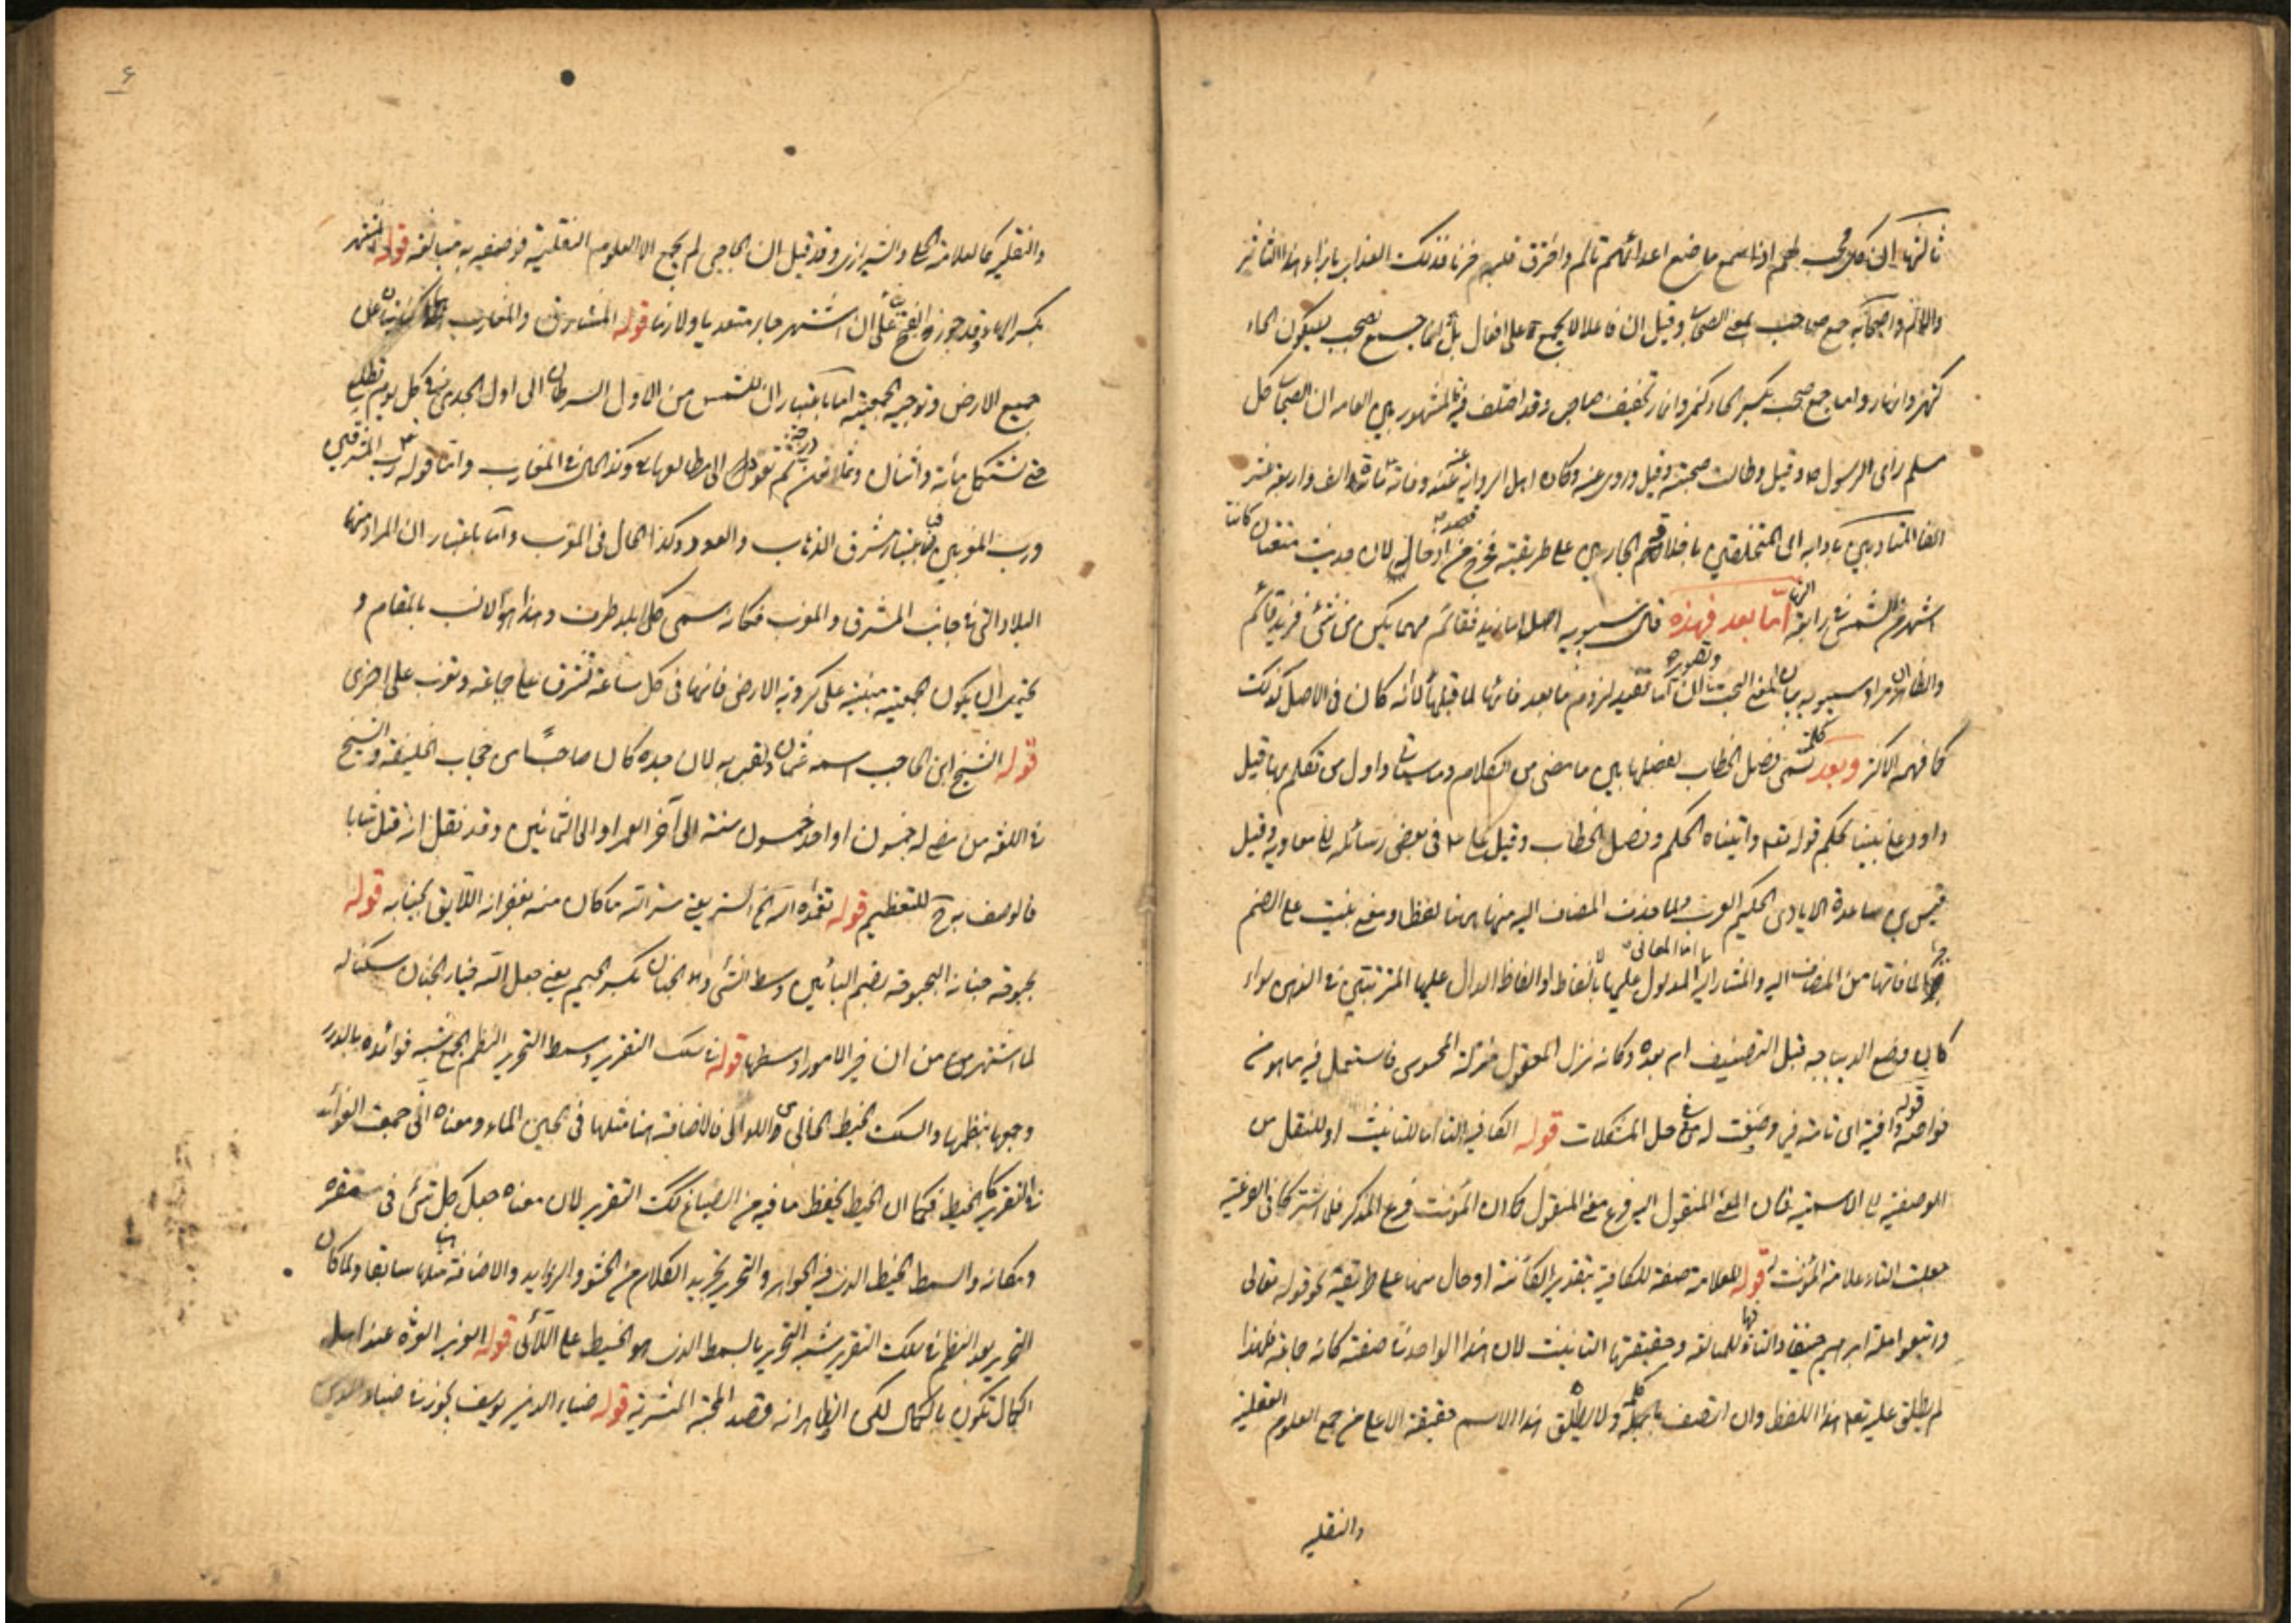 ثالثها ان كل محب لهم اذا سمع ما صنع اعدائهم تألم واحترق قلبهم حزنا فذلك العذاب بازاء هذا التأثر
والالم واصحابه جمع صاحب بمعنى الصحابي وقيل ان فاعلا لا يجمع على افعال بل انما جمع صحب بسكون الحاء
كنهر وانهار واما جمع صحب بكسر الحاء كنمر وانمار تخفيف صاحب وقد اختلف فيه فالمشهور بين العامه ان الصحابي كل
مسلم رأى الرسول ص وقيل وطالت صحبته وقيل وروى عنه وكان اهل الرواية عنه عند وفاته مائة الف واربعة عشر
الفا المتأدبين بآدابه اى المتخلقين باخلاقهم الجارين على طريقته فخرج من قصده لان حديث
اشهر من الشمس في رابعة النهار اما بعد فهذه قال سيبويه اصل اما زيد فقائم مهما يكن من شئ فزيد قائم
والظاهر ان مراد سيبويه بيان المعنى البحت ان اما تفيد لزوم ما بعد فائها لما قبلها لا انه كان فى الاصل كذلك
كما فهمه الاكثر وبعد كلمة تسمى فصل الخطاب لفصلها بين ما مضى من الكلام وما سيأتى واول من تكلم بها قيل
داود على نبينا بحكم قوله تعه واتيناه الحكم وفصل الخطاب وقيل على ع فى بعض رسائله الى معاويه وقيل
قيس بن ساعدة الايادى الحكيم العرب ولما حذف المضاف اليه منها هنا لفظا ومعنى بنيت على الضم
جبرا لما فاتها من المضاف اليه والمشار اليه اما المعانى المدلول عليها بالالفاظ او الفاظ الدال عليها المترتبتين فى الذهن سواء
كان وضع الديباجه قبل التصنيف ام بعده وكانه نزل المعقول منزلة المحسوس فاستعمل فيه ما هو من
خواصه قوله وافية اى تامة فى وصفت له من حل المشكلات قوله الكافيه التاء اما للتانيث او للنقل من
الوصفية الى الاسمية فان المعنى المنقول اليه فرع معنى المنقول كما ان المؤنث فرع المذكر فلما اشتركا فى الفرعية
جعلت التاء علامة المؤنث قوله للعلامة صفة للكافية بتقدير الكائنة او حال منها على طريقة نحو قوله تعالى
واتبع ملة ابراهيم حنيفا والتاء فيها للمبالغه وحقيقتها التانيث لان هذا الواحد صفة كانه جماعة فلهذا
لم يطلق عليه تعه هذا اللفظ وان اتصف بالحكمة ولا يطلق هذا الاسم حقيقة الا على من جمع العلوم العقلية
والنقليه
۶
والنقليه كالعلامة الحلى والشيرازى وقد قيل ان الحاجبى لم يجمع الا العلوم النقلية فوصفه به مبالغه قوله المشتهر
بكسر الهاء وقد جوز الفتح على ان اشتهر جاء متعديا ولازما قوله المشارق والمغارب كنايتان عن
جميع الارض وتوجيه الجمعية اما باعتبار ان للشمس من الاول السرطان الى اول الجدى فى كل يوم مطلع
حتى تستكمل مائة واثنان وثمانون درجة ثم تعود الى مطالعها وكذا الحال فى المغارب واما قوله رب المشرقين
ورب المغربين فباعتبار مشرق الذهاب والعود وكذا الحال فى المغرب واما باعتبار ان المراد منها
البلاد التى فى جانب المشرق والمغرب فكانه سمى كل بلد طرف وهذا هو الانسب بالمقام و
يحتمل ان يكون الجمعية مبنية على كروية الارض فانها فى كل ساعة تشرق على جماعة وتغرب على اخرى
قوله الشيخ ابن الحاجب اسمه عثمان ولقب به لان جده كان صاحبا من حجاب الخليفة والشيخ
فى اللغه من مضى له خمسون او احد خمسون سنة الى آخر العمر او الى الثمانين وقد نقل انه قتل شابا
فالوصف به ح للتعظيم قوله تغمده الله الخ الستر يعنى ستر الله ما كان منه بغفرانه اللايق بجنابه قوله
بحبوحة جنانه البحبوحة بضم البائين وسط الشئ والجنان بكسر الجيم يعنى جعل الله خيار الجنان سكنا له
لما اشتهر من ان خير الامور اوسطها قوله فى سلك التقرير وسمط التحرير النظم الجمع شبه فوائده بالدرر
وجمعها بنظمها والسلك الخيط الخالى من اللوالى فالاضافة هنا مثلها فى لجين الماء ومعناه انى جمعت الفوائد
فى التقرير كالخيط فكما ان الخيط يحفظ ما فيه من الضياع كك التقرير لان معناه جعل كل شئ فى مقره
ومكانه والسمط الخيط الذى فيه الجواهر والتحرير تجريد الكلام من الحشو والزوايد والاضافة هنا مثلها سابقا ولما كان
التحرير بعد النظم فى سلك التقرير شبه التحرير بالسمط الذى هو الخيط على اللآلى قوله العزيز العزة عند اهل
الكمال تكون بالكمال لكن الظاهر انه قصد المحبة البشرية قوله ضياء الدين يوسف يجوز فى ضياء